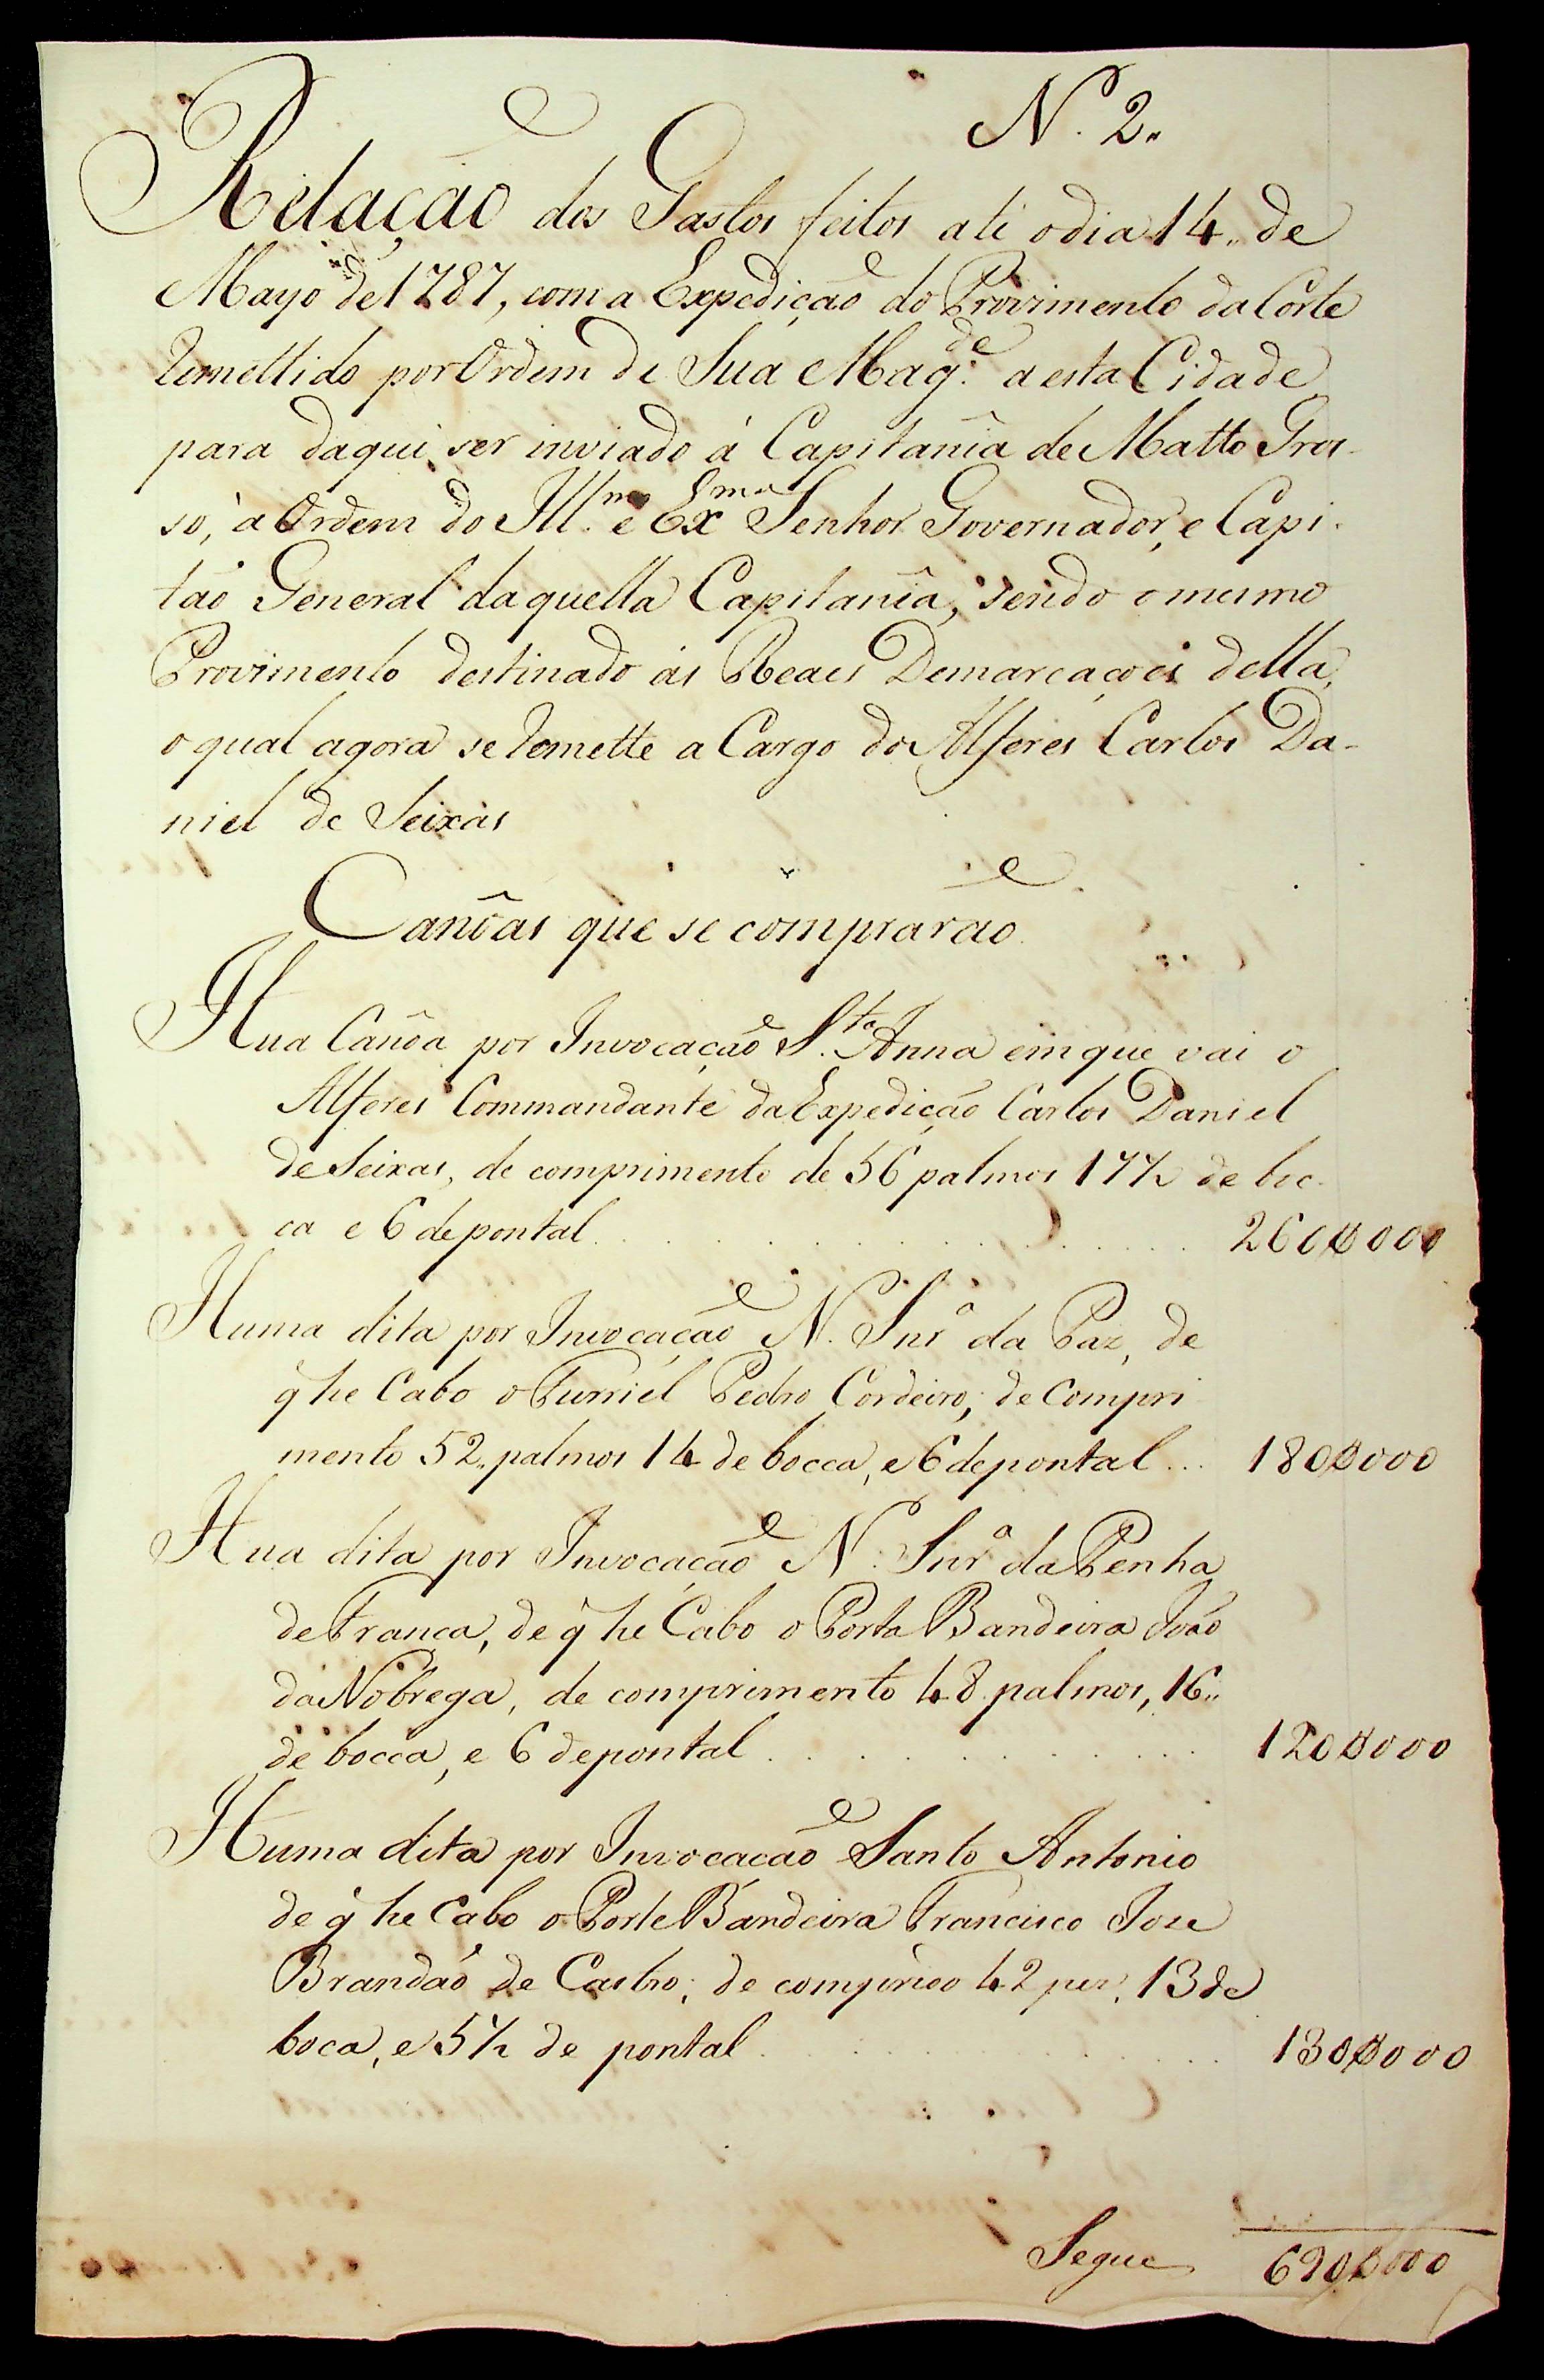 N. 2„
Relação dos Gastos feitos até o dia 14„ de
Mayo de 1787, com a Expedição do Provimento da Corte
remettido por Ordem de Sua Mag.de a esta Cidade
para daqui ser inviado á Capitanîa de Matto Gros-
so, à Ordem do Ill.mo e Ex.mo Senhor Governador, e Capi-
tão General daquella Capitanîa, sendo o mesmo
Provimento destinado ás Reaes Demarcaçoẽs della,
o qual agora se remette a Cargo do Alferes Carlos Da-
niel de Seixas
Canôas que se comprarão
Hua Canôa por Invocação S.ta Anna em que vai o
Alferes Commandante da Expedição Carlos Daniel
de Seixas, de comprimento de 56 palmos 17½ de boc-
ca e 6 de pontal . . . . . . . . . 260$000
Huma dita por Invocação N. Snr.a da Paz, de
q̃ he Cabo o Furriel Pedro Cordeiro, de Compri
mento 52„ palmos 14 de bocca, e 6 de pontal . . . 180$000
Hua dita por Invocação N. Snr.a da Penha
de Franca, de q̃ he Cabo o Porta Bandeira João
da Nobrega, de comprimento 48 palmos, 16„
de bocca, e 6 de pontal . . . . . . . 120$000
Huma dita por Invocacão Santo Antonio
de q̃ he Cabo o Porte Bandeira Francisco Joze
Brandão de Castro; de 42 13 de
boca, e 5½ de pontal . . . . . . . 130$000
Segue 690$000